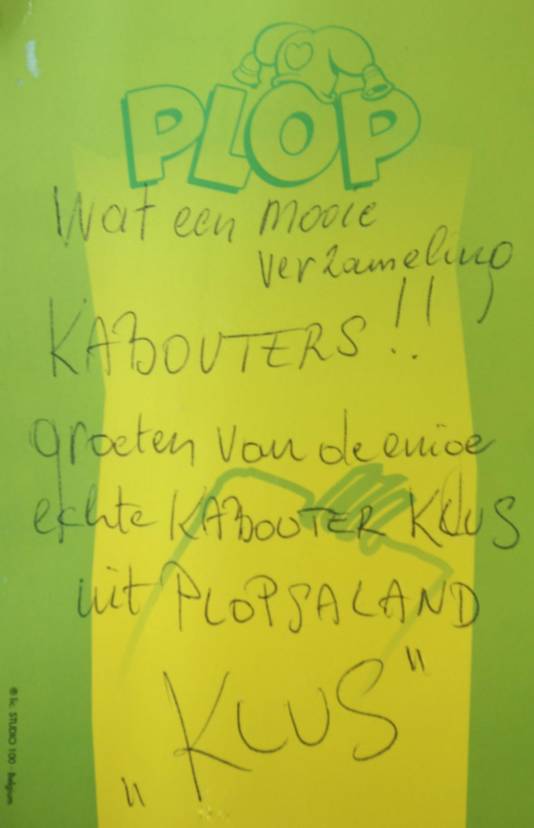 PLOP
Wat een mooie
verzameling
KABOUTERS!!
groeten van de enige
echte KABOUTER KLUS
uit PLOPSALAND
„KLUS"
© lic. STUDIO 100 - Belgium